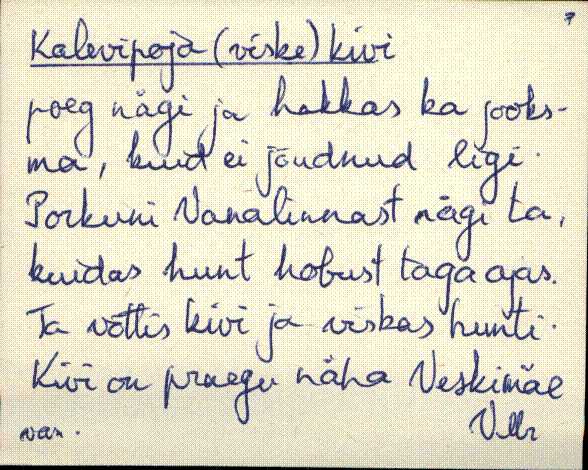 7
Kalevipoja (viske) kivi
poeg nägi ja hakkas ka jooks-
ma, kuid ei jõudnud ligi.
Porkuni Vanalinnast nägi ta,
kuidas hunt hobust taga ajas.
Ta võttis kivi ja viskas hunti.
Kivi on praegu näha Veskimäe